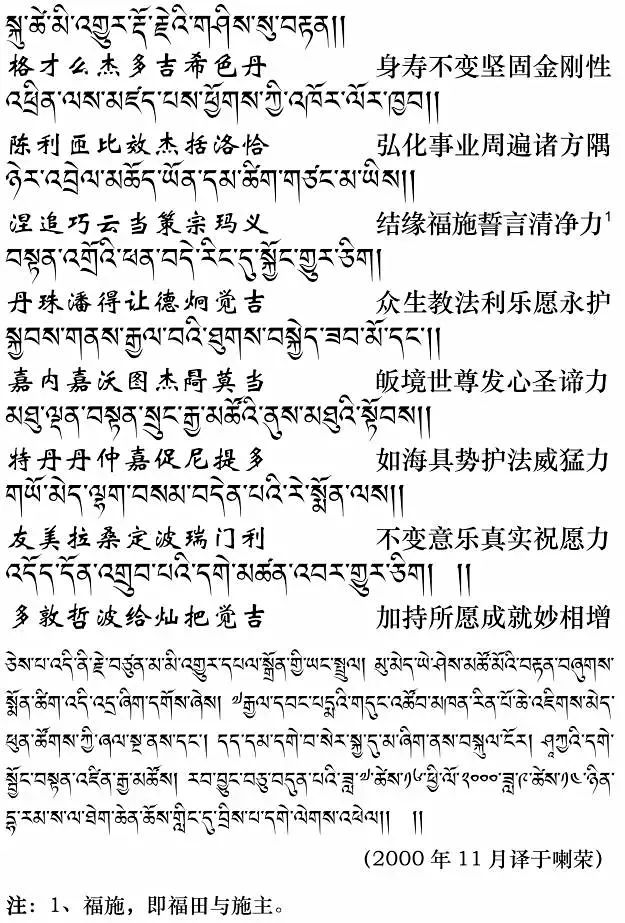 སྐུ་ཚེ་མི་འགྱུར་རྡོ་རྗེའི་གཤིས་སུ་བརྟན།།
格才么杰多吉希色丹 身寿不变坚固金刚性
འཕྲིན་ལས་མཛད་པས་ཕྱོགས་ཀྱི་འཁོར་ལོར་ཁྱབ།།
陈利匝比效杰括洛恰 弘化事业周遍诸方隅
ཉེར་འབྲེལ་མཆོད་ཡོན་དམ་ཚིག་གཙང་མ་ཡིས།།
涅追巧云当策宗玛义 结缘福施誓言清净力1
བསྟན་འགྲོའི་ཕན་བདེ་རིང་དུ་སྐྱོང་གྱུར་ཅིག།
丹珠潘得让德炯觉吉 众生教法利乐愿永护
སྐྱབས་གནས་རྒྱལ་བའི་ཐུགས་བསྐྱེད་ཟབ་མོ་དང་།།
嘉内嘉沃图杰局莫当 皈境世尊发心圣谛力
མཐུ་ལྡན་བསྟན་སྲུང་རྒྱ་མཚོའི་ནུས་མཐུའི་སྟོབས།།
特丹丹仲嘉促尼提多 如海具势护法威猛力
གཡོ་མེད་ལྷག་བསམ་བདེན་པའི་རེ་སྨོན་ལས།།
友美拉桑定波瑞门利 不变意乐真实祝愿力
འདོད་དོན་འགྲུབ་པའི་དགེ་མཚན་འབར་གྱུར་ཅིག། །།
多敦哲波给灿把觉吉 加持所愿成就妙相增
ཅེས་པ་འདི་ནི་རྗེ་བཙུན་མ་མི་འགྱུར་དཔལ་སྒྲོན་གྱི་ཡང་སྤྲུལ། མུ་མེད་ཡེ་ཤེས་མཚོ་མོའི་བརྟན་བཞུགས་
སྨོན་ཚིག་འདི་འདྲ་ཞིག་དགོས་ཞེས། ༧རྒྱལ་དབང་པདྨའི་གདུང་འཚོབ་མཁན་རིན་པོ་ཆེ་འཇིགས་མེད་
ཕུན་ཚོགས་ཀྱི་ཞལ་སྔ་ནས་དང་། དད་དམ་དགེ་བ་སེར་སྐྱ་དུ་མ་ཞིག་ནས་བསྐུལ་ངོར། ཤཱཀྱའི་དགེ་
སྦྱོང་བསྟན་འཛིན་རྒྱ་མཚོས། རབ་བྱུང་བཅུ་བདུན་པའི་ཟླ་༧ཚེས་༡༦ཕྱི་ལོ་༢༠༠༠ཟླ་༩ཚེས་༡༤ཉིན་
དྷ་རམ་ས་ལ་ཐེག་ཆེན་ཆོས་གླིང་དུ་བྲིས་པ་དགེ་ལེགས་འཕེལ།། །།
(2000 年 11 月译于喇荣)
注：1、福施，即福田与施主。